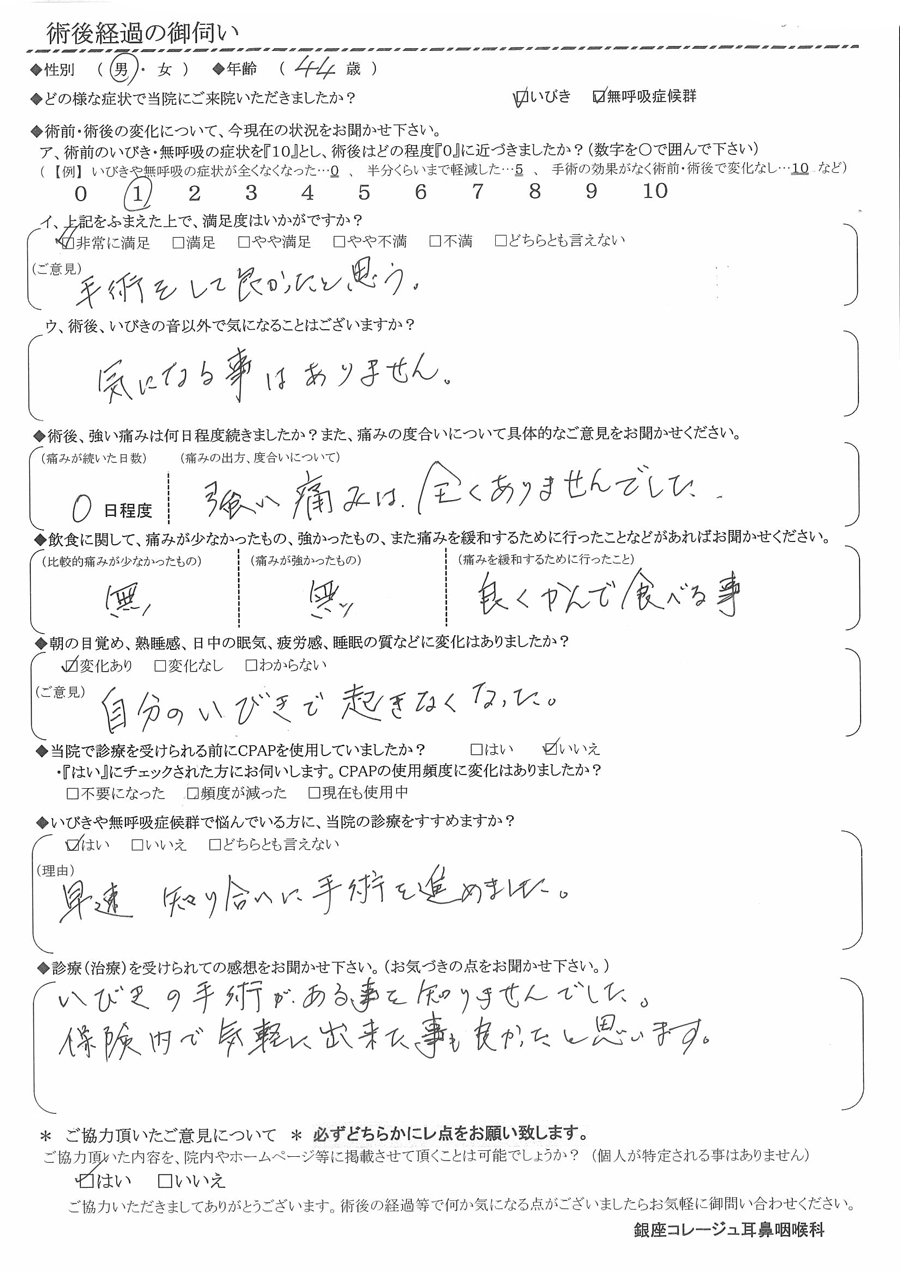 術後経過の御伺い
◆性別 （ 男 ・ 女 ） ◆年齢 （ 44 歳 ）
◆どの様な症状で当院にご来院いただきましたか？ ☑いびき ☑無呼吸症候群
◆術前・術後の変化について、今現在の状況をお聞かせ下さい。
ア、術前のいびき・無呼吸の症状を『10』とし、術後はどの程度『0』に近づきましたか？（数字を○で囲んで下さい）
（【例】 いびきや無呼吸の症状が全くなくなった…0 、 半分くらいまで軽減した…5 、 手術の効果がなく術前・術後で変化なし…10 など）
0 1 2 3 4 5 6 7 8 9 10
イ、上記をふまえた上で、満足度はいかがですか？
☑非常に満足 □満足 □やや満足 □やや不満 □不満 □どちらとも言えない
（ご意見）
手術をして良かったと思う。
ウ、術後、いびきの音以外で気になることはございますか？
気になる事はありません。
◆術後、強い痛みは何日程度続きましたか？また、痛みの度合いについて具体的なご意見をお聞かせください。
（痛みが続いた日数） （痛みの出方、度合いについて）
0 日程度 強い痛みは、全くありませんでした。
◆飲食に関して、痛みが少なかったもの、強かったもの、また痛みを緩和するために行ったことなどがあればお聞かせください。
（比較的痛みが少なかったもの） （痛みが強かったもの） （痛みを緩和するために行ったこと）
無 無 良くかんで食べる事
◆朝の目覚め、熟睡感、日中の眠気、疲労感、睡眠の質などに変化はありましたか？
☑変化あり □変化なし □わからない
（ご意見）
自分のいびきで起きなくなった。
◆当院で診療を受けられる前にCPAPを使用していましたか？ □はい ☑いいえ
・『はい』にチェックされた方にお伺いします。CPAPの使用頻度に変化はありましたか？
□不要になった □頻度が減った □現在も使用中
◆いびきや無呼吸症候群で悩んでいる方に、当院の診療をすすめますか？
☑はい □いいえ □どちらとも言えない
（理由）
早速 知り合いに手術を進めました。
◆診療（治療）を受けられての感想をお聞かせ下さい。（お気づきの点をお聞かせ下さい。）
いびきの手術がある事を知りませんでした。
保険内で気軽に出来た事も良かったと思います。
＊ ご協力頂いたご意見について ＊ 必ずどちらかにレ点をお願い致します。
ご協力頂いた内容を、院内やホームページ等に掲載させて頂くことは可能でしょうか？ （個人が特定される事はありません）
☑はい □いいえ
ご協力いただきましてありがとうございます。術後の経過等で何か気になる点がございましたらお気軽に御問い合わせください。
銀座コレージュ耳鼻咽喉科